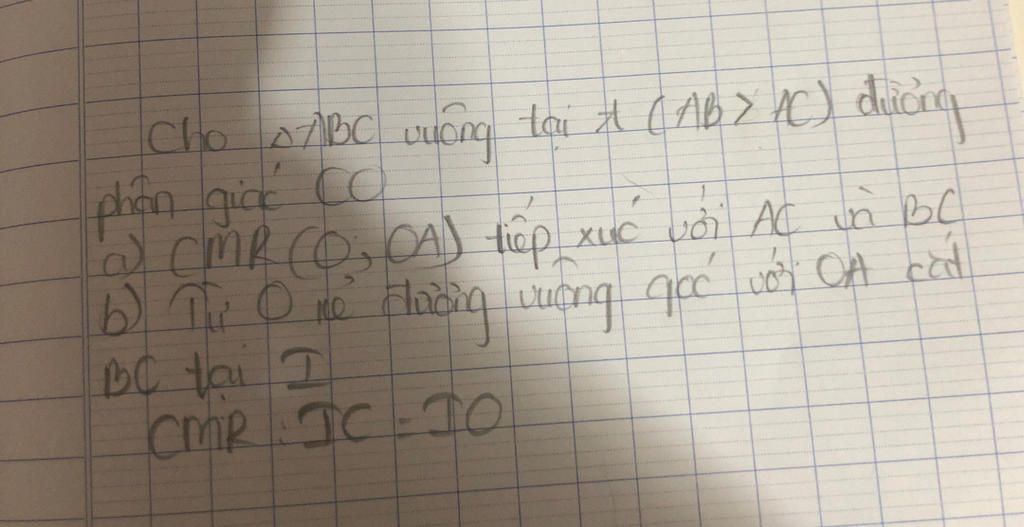 Cho △ABC vuông tại A (AB > AC) đường
phân giác CO
a) CMR (O; OA) tiếp xúc với AC và BC
b) Từ O kẻ đường vuông góc với OA cắt
BC tại I
CMR : IC = IO